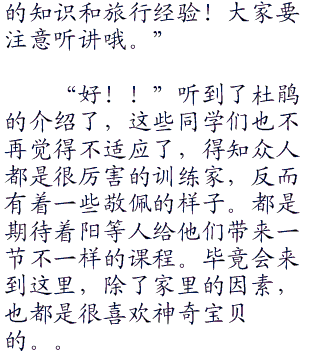 的知识和旅行经验！大家要
注意听讲哦。”
“好！！”听到了杜鹃
的介绍了，这些同学们也不
再觉得不适应了，得知众人
都是很厉害的训练家，反而
有着一些敬佩的样子。都是
期待着阳等人给他们带来一
节不一样的课程。毕竟会来
到这里，除了家里的因素，
也都是很喜欢神奇宝贝
的。。